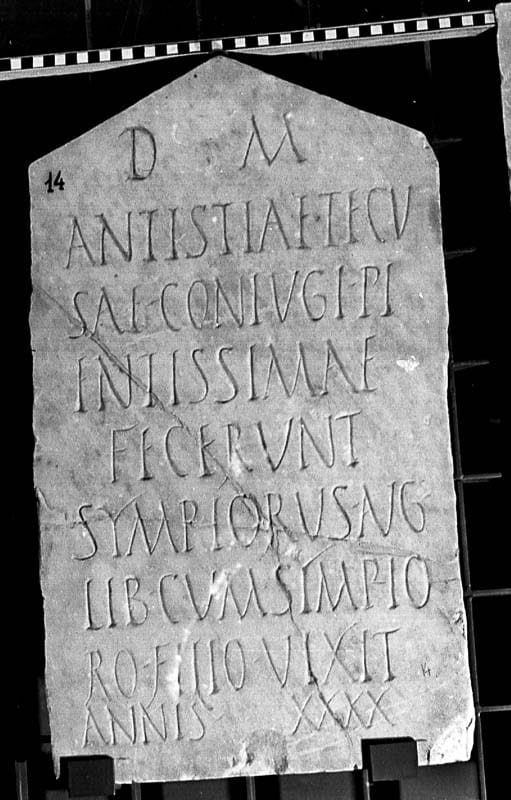 D M
14
ANTISTIAE·TECV
SAE·CONIVGI·PI
ENTISSIMAE
FECERVNT
SYMPIORVS·AVG
LIB·CVM SIMPIO
RO·FILIO VIXIT
ANNIS XXXX